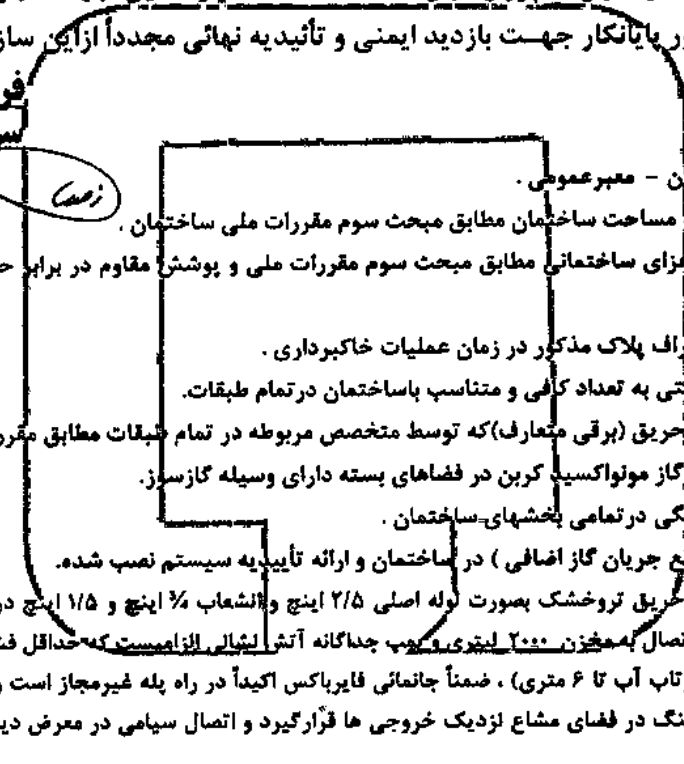 ور پایانکار جهت بازدید ایمنی و تأئیدیه نهائی مجدداً ازاین ساز
فر
ن - معبرعمومی .
مساحت ساختمان مطابق مبحث سوم مقررات ملی ساختمان .
زای ساختمانی مطابق مبحث سوم مقررات ملی و پوشش مقاوم در برابر ح
راف پلاک مذکور در زمان عملیات خاکبرداری .
تی به تعداد کافی و متناسب باساختمان درتمام طبقات.
حریق (برقی متعارف)که توسط متخصص مربوطه در تمام طبقات مطابق مقرر
گاز مونواکسید کربن در فضاهای بسته دارای وسیله گازسوز.
گی درتمامی بخشهای ساختمان .
ع جریان گاز اضافی ) در ساختمان و ارائه تأییدیه سیستم نصب شده.
حریق تروخشک بصورت لوله اصلی ۲/۵ اینچ و انشعاب ¾ اینچ و ۱/۵ اینچ در
تصال به مخزن ۲۰۰۰ لیتری و پمپ جداگانه آتش نشانی الزامیست که حداقل فش
تاب آب تا ۶ متری) ، ضمناً جانمائی فایرباکس اکیداً در راه پله غیرمجاز است و
نگ در فضای مشاع نزدیک خروجی ها قرارگیرد و اتصال سیامی در معرض دی